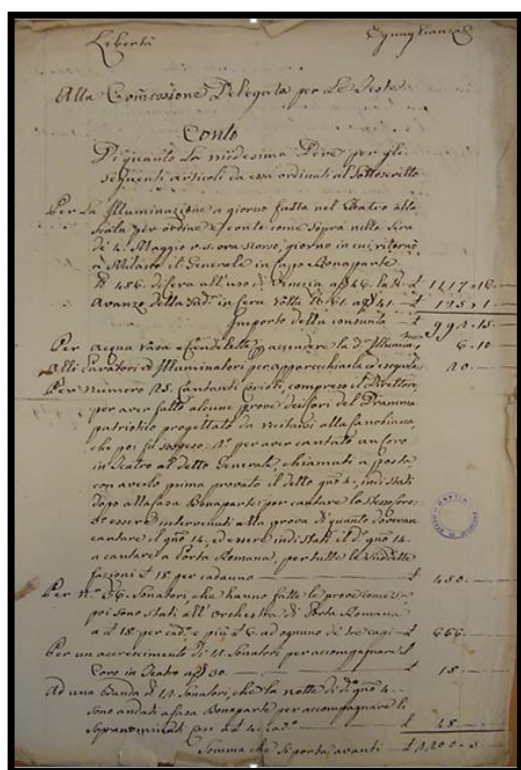 Libertà Eguaglianza
Alla Com̃issione Delegata per Le Feste
Conto
Di quanto La medesima Deve per gli
seguenti articoli da essa ordinati al Sottoscritto
Per La Illuminazione a giorno fatta nel Teatro alla
Scala per ordine e conto come sopra nella Sera
de 4. Maggio v. s. ora scorso, giorno in cui ritornò
a Milano il Generale in Capo Bonaparte
lb 486. di cera all'uso di Venezia a
Avanzo della sud.ª in Cera volta lb
Importo della consunta 991.15
Per acqua rasa e Candelette p accendere la d.ª Illumin.ne 6.10
Alli Lavoratori ed Illuminatori per apparecchiarla ed eseguirla
Per numero 25. Cantanti Coristi, compreso il Direttore
per aver fatto alcune prove de' Cori del Dramma
patriotico progettato da recitarsi alla Canobiana,
che poi fu sospeso: 2.º per aver cantato un Coro
in Teatro al detto Generale, chiamati a posta,
con averlo prima provato il detto gno 4., indi stati
dopo alla Casa Bonaparte per cantare lo stesso Coro:
3.º essere intervenuti alla prova di quanto dovevan
cantare il gno 14., ed essere indi stati il d.º gno 14.
a cantare a Porta Romana, per tutte le suddette
fazioni £ 18 per cadauno £ 450
Per N.º 36. Sonatori che hanno fatte le prove come s.ª
poi sono stati all'orchestra di Porta Romana
a £ 18 per cad.º e più £ 6 ad ognuno de tre capi £ 666.
Per un accrescimento di Sonatori per accompagnare il
Coro in Teatro £ 18
Ad una Banda di Sonatori, che la notte di d.º gno 4.
sono andati a Casa Bonaparte per accompagnare li
Sopranominati Cori a £ 4. cad.º £ 48
Somma che si porta avanti